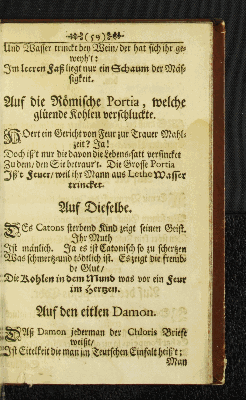 (59)
Und Wasser trinckt bey Wein/ der hat sich ihr ge-
weyh't:
Im leeren Faß liegt nur ein Schaum der Mäs-
sigkeit.
Auf die Römische Portia, welche
glüende Kohlen verschluckte.
Hört ein Gericht von Feur zur Trauer Mahl-
zeit? Ja!
Doch ist's nur die davon die Lebens-satt versincket
Zu dem/ den Sie betraur't. Die Große Portia
Ißt Feuer/ weil ihr Mann aus Lethe Wasser
trincket.
Auf Dieselbe.
DEs Catons sterbend Kind zeigt seinen Geist.
Ihr Muth
Ist mänlich. Ja es ist Catonisch so zu schertzen
Was schmertz-und tödtlich ist. Es zeigt die frem-
de Glut/
Die Kohlen in dem Mund was vor ein Feur
im Hertzen.
Auf den eitlen Damon.
DAß Damon jederman der Chloris Briefe
weißt/
Ist Eitelkeit die man im Teutschen Einfalt heiß't:
Man